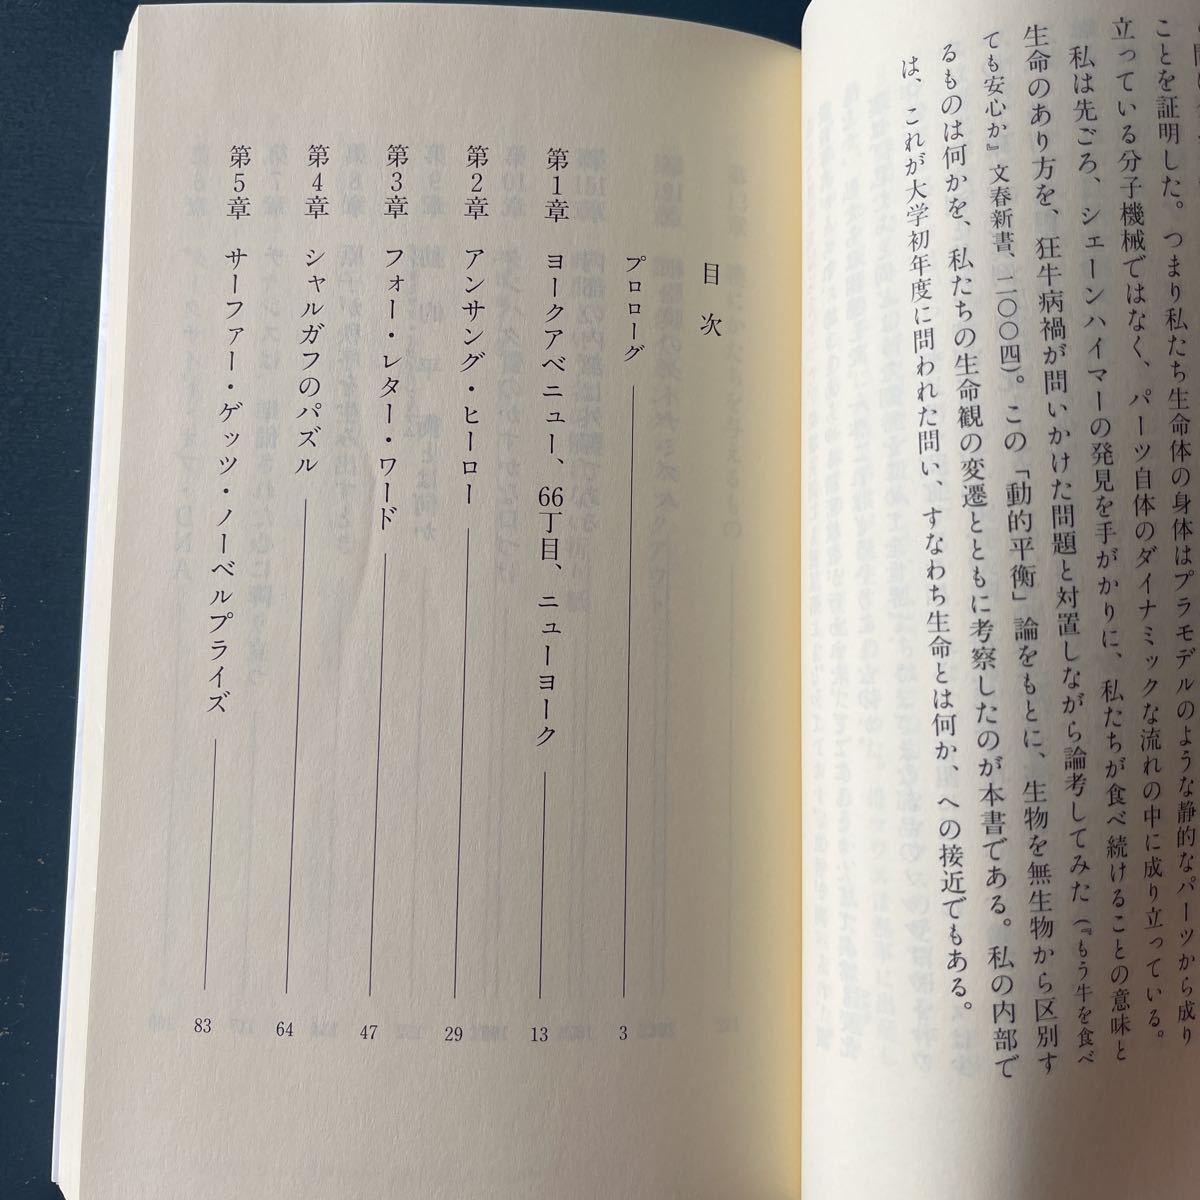 ことを証明した。つまり私たち生命体の身体はプラモデルのような静的なパーツから成り
立っている分子機械ではなく、パーツ自体のダイナミックな流れの中に成り立っている。
私は先ごろ、シェーンハイマーの発見を手がかりに、私たちが食べ続けることの意味と
生命のあり方を、狂牛病禍が問いかけた問題と対置しながら論考してみた（『もう牛を食べ
ても安心か』文春新書、二〇〇四）。この「動的平衡」論をもとに、生物を無生物から区別す
るものは何かを、私たちの生命観の変遷とともに考察したのが本書である。私の内部で
は、これが大学初年度に問われた問い、すなわち生命とは何か、への接近でもある。
目次
プロローグ 3
第1章 ヨークアベニュー、66丁目、ニューヨーク 13
第2章 アンサング・ヒーロー 29
第3章 フォー・レター・ワード 47
第4章 シャルガフのパズル 64
第5章 サーファー・ゲッツ・ノーベルプライズ 83